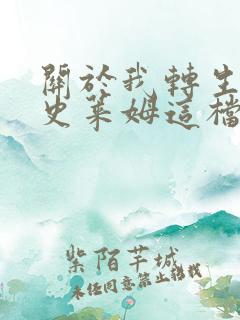 關於我轉生
史萊姆這檔
紫陌芊城
未經同意禁止轉載